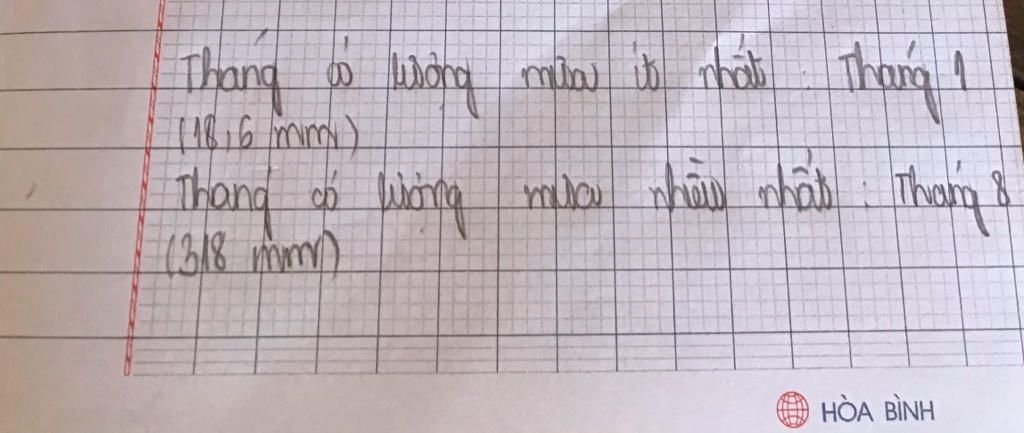 Tháng có lượng mưa ít nhất : Tháng 1
(18,6 mm)
Tháng có lượng mưa nhều nhất : Tháng 8
(318 mm)
HÒA BÌNH